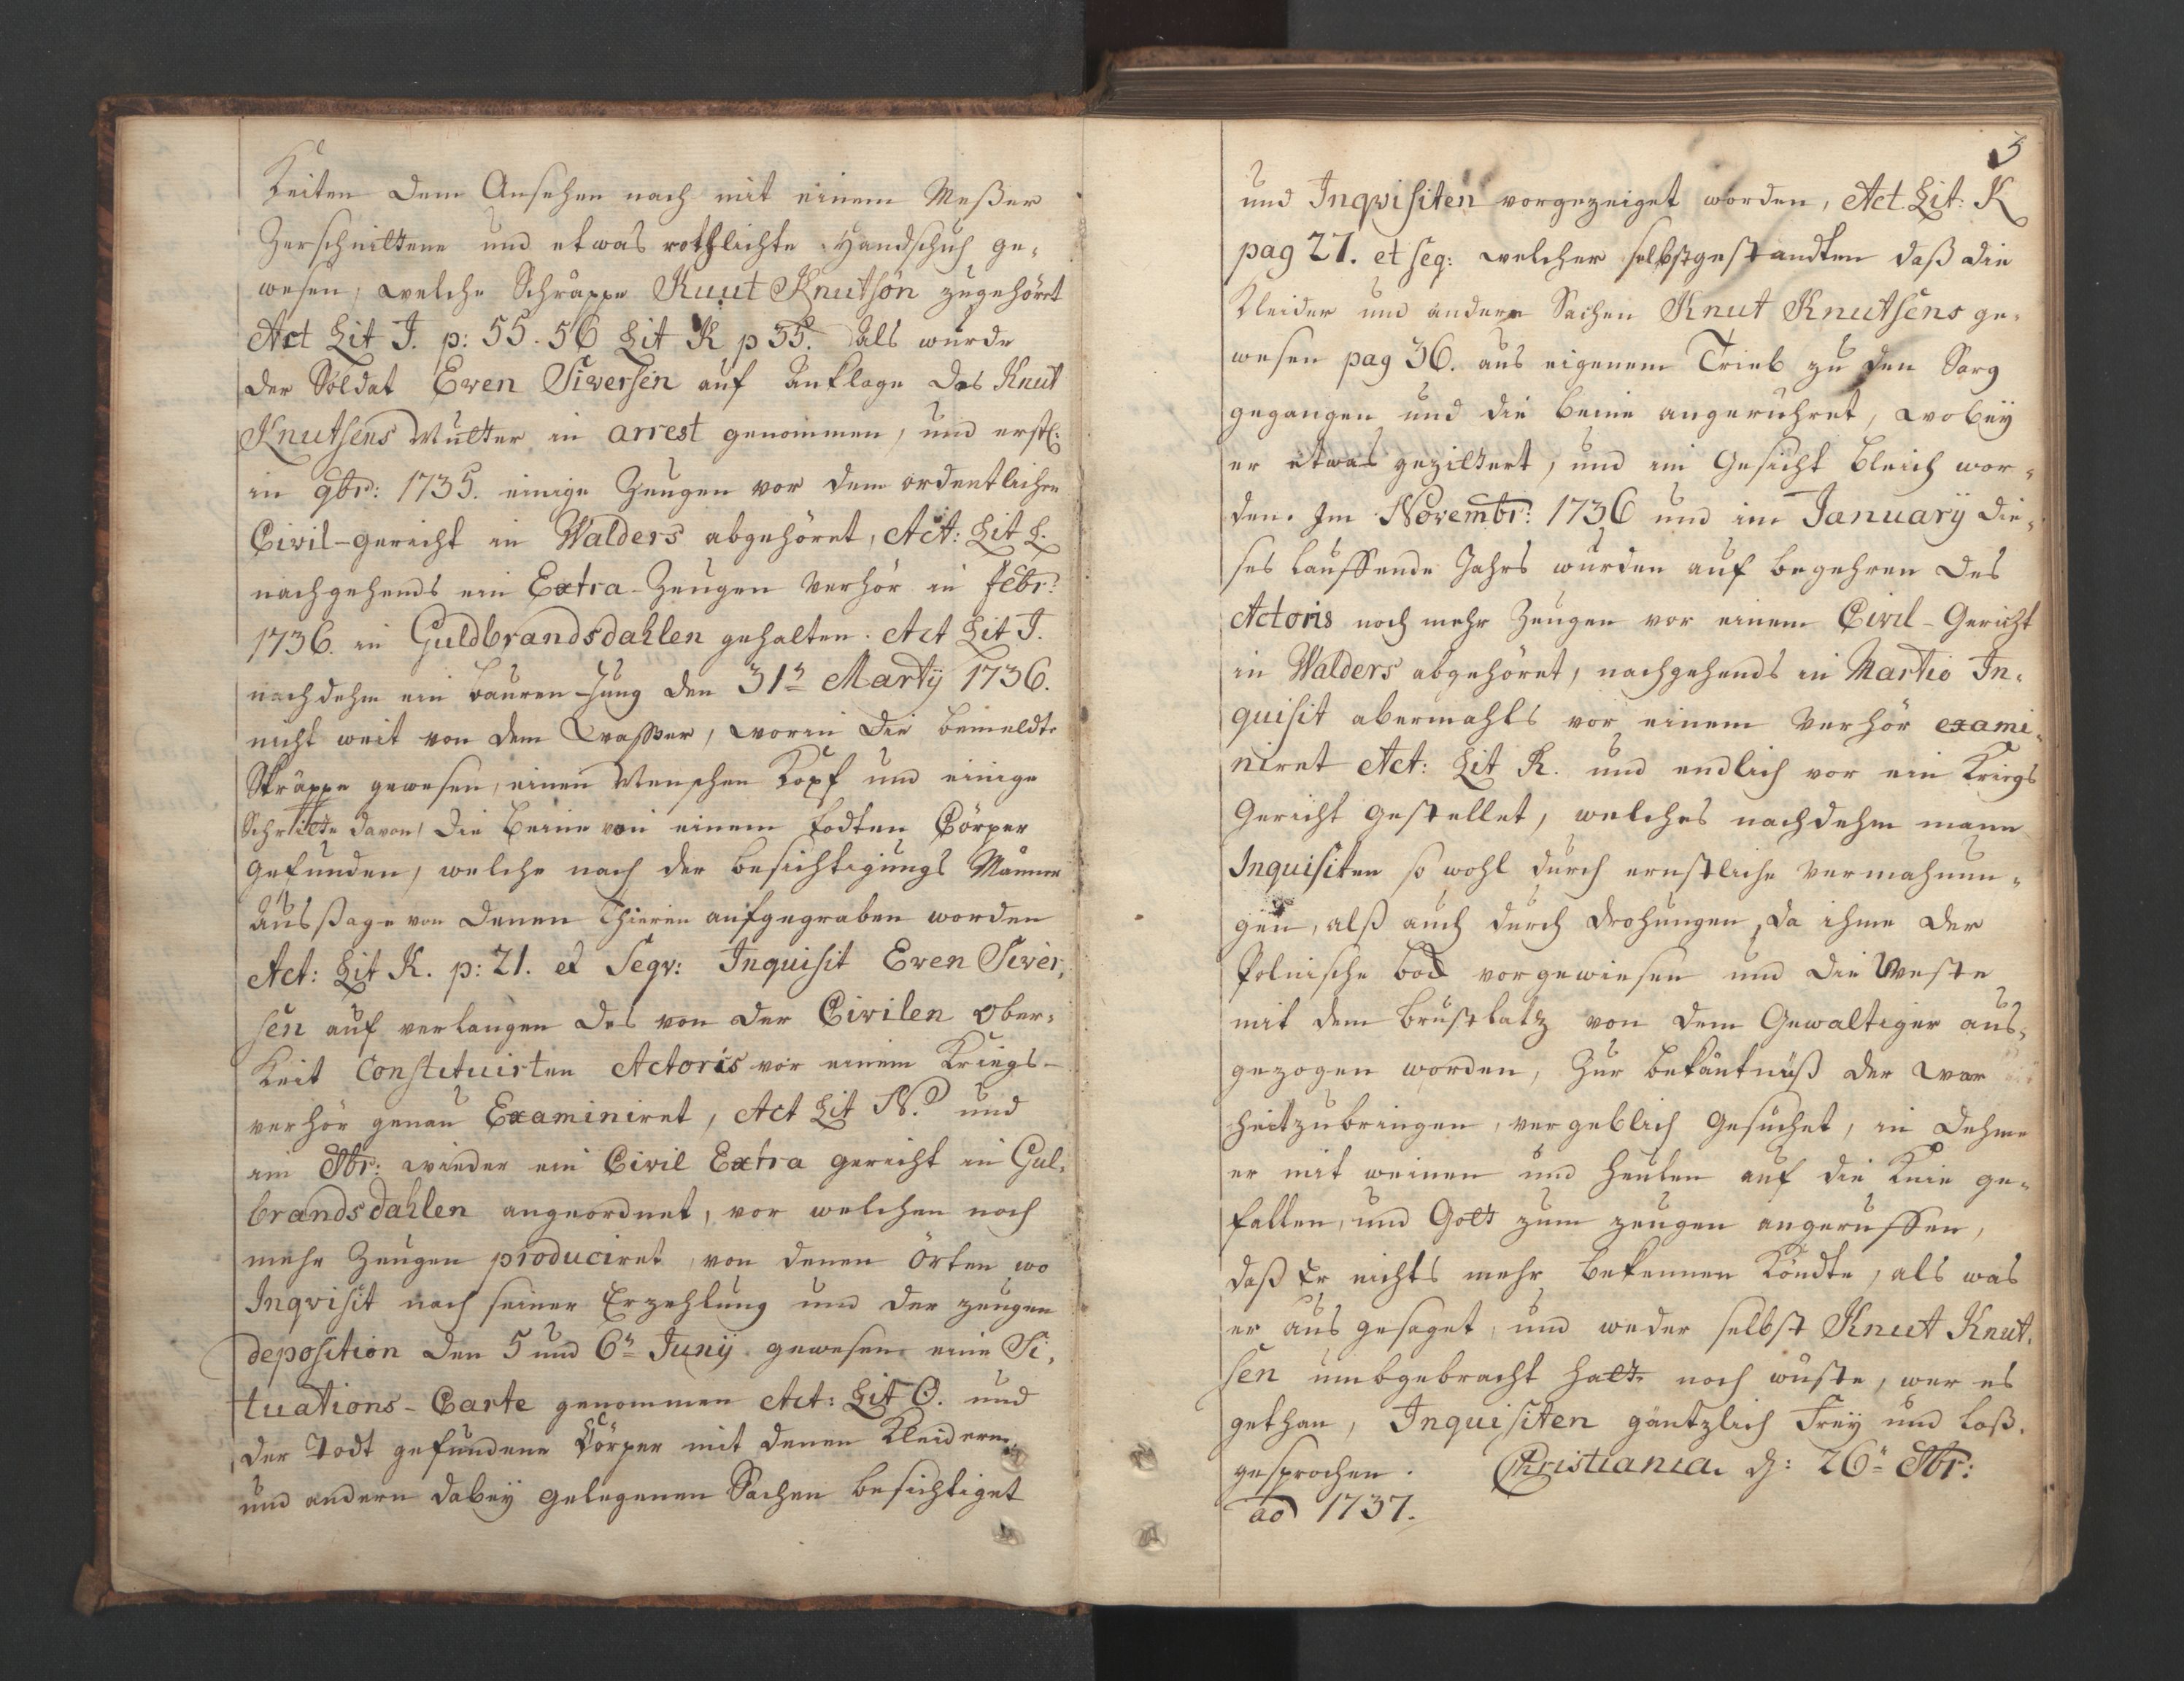 Keiten dem Ansehen nach mit einem Meßer
Zerschnittene und etwas rothlichte Handschuh ge-
wesen, welche Schräppe Knut Knutsön zugehört
Act Lit J. p: 55. 56 Lit K p 35. Als wurde
der Soldat Even Siversen auf Anklage des Knut
Knutsens Mutter in arrest genommen, und erstl:
in 9br: 1735. einige Zeugen vor dem ordentlichen
Civil-gericht in Walders abgehöret, Act: Lit L.
nachgehends ein Extra-Zeugen Verhör in febr:
1736. in Guldbrandsdahlen gehalten. Act Lit J.
nachdehm ein Bauren-Jung den 31ⁿ Martÿ 1736.
nicht weit von dem Waßer, worin die bemeldte
Skräppe gewesen, einen Menschen Kopf und einige
Schritte davon, die Beine von einem todten Cörper
gefunden, welche nach der besichtigungs Männer
Ausßage von denen Thieren aufgegraben worden
Act: Lit K. p: 21. et Seqv: Inquisit Even Siver-
sen auf verlangen des von der Civilen Ober-
Keit Constituirten Actoris vor einem Kriegs-
verhör genau Examiniret, Act Lit N.º und
im 8br: wieder ein Civil Extra gericht in Gul-
brandsdahlen angeordnet, vor welchen noch
mehr Zeugen produciret, von denen Örten wo
Inqvisit nach seiner Erzehlung und der zeugen
deposition den 5 und 6ⁿ Junÿ gewesen eine Si-
tuations-Carte genommen Act: Lit O. und
der Todt gefundene Cörper mit denen Kleidern
und andern dabeÿ gelegenen Sachen besichtiget
5
und Inqvisiten vorgezeiget worden, Act Lit: K
pag 27. et seq: welcher selbst gestandten daß die
Kleider und andere Sachen Knut Knutsens ge-
wesen pag 36. aus eigenem Trieb zu den Sarg
gegangen und die beine angerühret, wobeÿ
er etwas gezittert, und im Gesicht bleich wor-
den. Im Novembr: 1736 und im Januarÿ die-
ses lauffende Jahrs wurden auf begehren des
Actoris noch mehr Zeugen vor einem Civil-Gericht
in Walders abgehöret, nachgehends in Martio In-
quisit abermahls vor einem Verhör exami-
niret Act: Lit R. und endlich vor ein Kriegs
Gericht gestellet, welches nachdehm mann
Inquisiten so wohl durch ernstliche Vermahnun-
gen, alß auch durch drohungen, da ihme der
Polnische bock vorgewiesen und die Weste
mit dem brustlatz von dem Gewaltiger aus-
gezogen worden, Zur bekäntnüß der War
heit zu bringen, vergeblich gesuchet, in dehme
er mit weinen und heulen auf die Knie ge-
fallen, und Gott zum zeugen angeruffen,
daß Er nichts mehr bekennen Köndte, als was
er aus gesaget, und weder selbst Knut Knut-
sen umbgebracht hatte noch wüste, wer es
gethan, Inquisiten gäntzlich Freÿ und loß-
gesprochen. Christiania d: 26ⁿ 8br:
ao 1737.